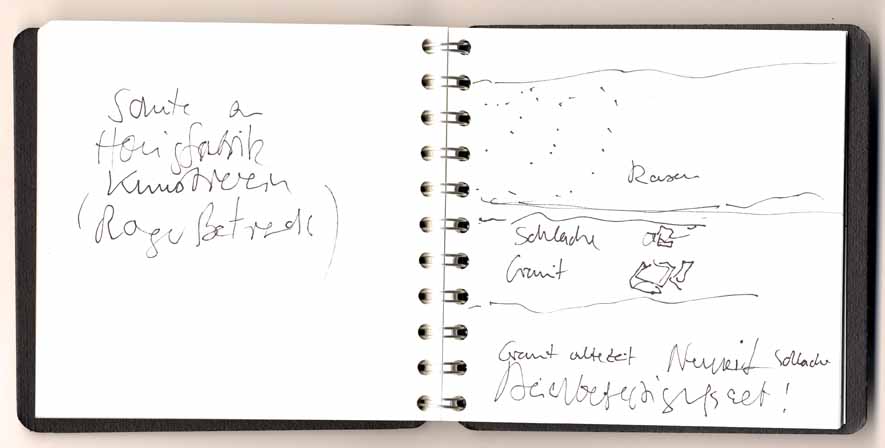 Schute an
Honigfabrik
Kunstverein
Rasen
Schlacke
Granit
Granit alte Zeit Neuzeit Schlacke
Deichbefestigungsart!